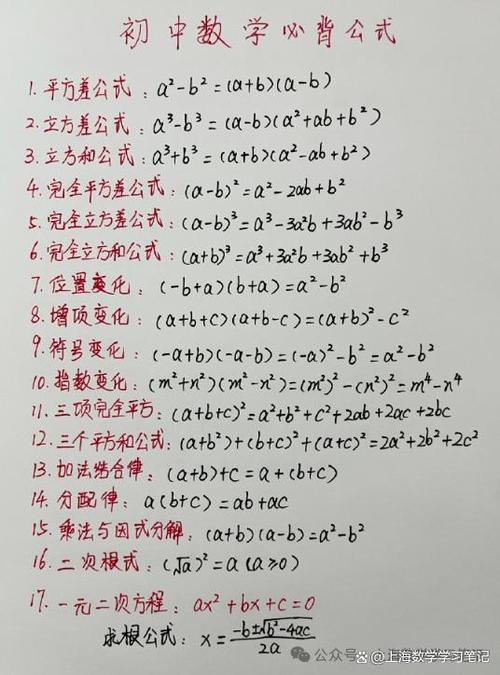 初中数学必背公式
1.平方差公式：a²-b²=(a+b)(a-b)
2.立方差公式：a³-b³=(a-b)(a²+ab+b²)
3.立方和公式：a³+b³=(a+b)(a²-ab+b²)
4.完全平方差公式：(a-b)²=a²-2ab+b²
5.完全立方差公式：(a-b)³=a³-3a²b+3ab²-b³
6.完全立方和公式：(a+b)³=a³+3a²b+3ab²+b³
7.位置变化：(-b+a)(b+a)=a²-b²
8.增项变化：(a+b+c)(a+b-c)=(a+b)²-c²
9.符号变化：(-a+b)(-a-b)=(-a)²-b²=a²-b²
10.指数变化：(m²+n²)(m²-n²)=(m²)²-(n²)²=m⁴-n⁴
11.三项完全平方：(a+b+c)²=a²+b²+c²+2ab+2ac+2bc
12.三个平方和公式：(a+b²)+(b+c)²+(a+c)²=2a²+2b²+2c²
13.加法结合律：(a+b)+c=a+(b+c)
14.分配律：a(b+c)=ab+ac
15.乘法与因式分解：(a+b)(a-b)=a²-b²
16.二次根式：(√a)²=a(a≥0)
17.一元二次方程：ax²+bx+c=0
求根公式：x=(-b±√b²-4ac)/2a
公众号
@上海数学学习笔记